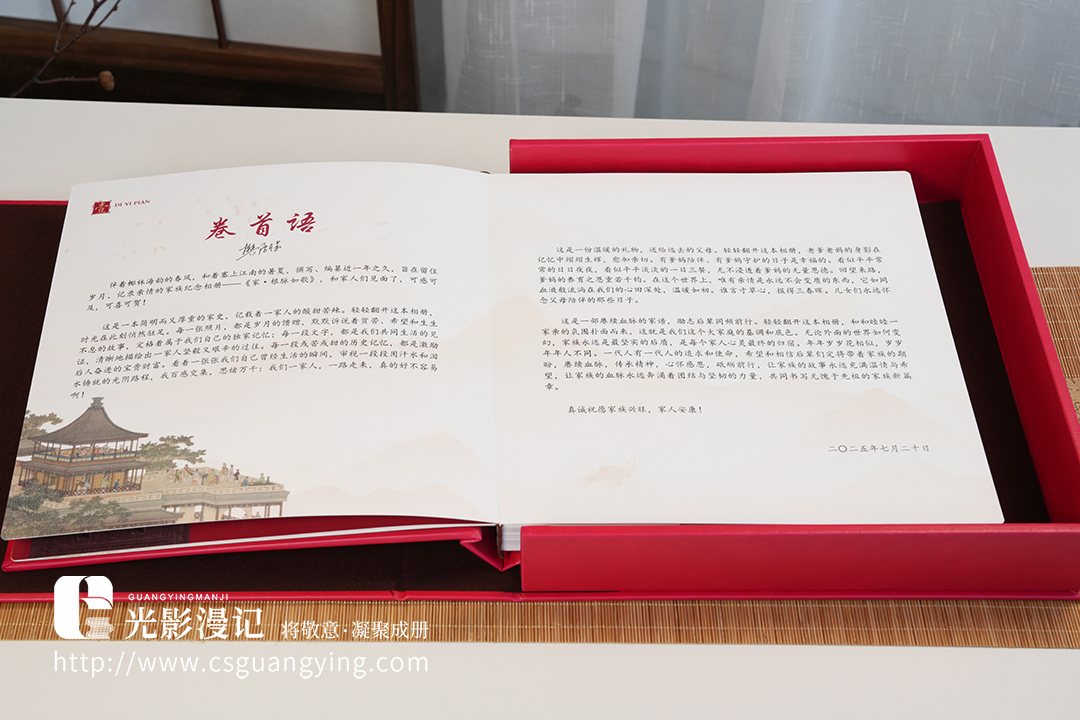 DI YI PIAN
卷首语
伴着椰林海韵的春风，和着塞上江南的暑夏，撰写、编纂近一年之久，旨在留住
岁月、记录亲情的家族纪念相册——《家·根脉如歌》，和家人们见面了，可感可
及，可喜可贺！
这是一本简明而又厚重的家史，记载着一家人的酸甜苦辣。轻轻翻开这本相册，
时光在此刻悄然驻足。每一张照片，都是岁月的馈赠，默默诉说着贫苦、希望和生生
不息的故事，定格着属于我们自己的独家记忆；每一段文字，都是我们共同生活的见
证，清晰地描绘出一家人坚毅又艰辛的过往。每一段或苦或甜的历史记忆，都是激励
后人奋进的宝贵财富。看着一张张我们自己曾经生活的瞬间，审视一段段用汗水和泪
水铸就的光阴路程，我百感交集，思绪万千：我们一家人，一路走来，真的好不容易
啊！
这是一份温暖的礼物，送给远去的父母。轻轻翻开这本相册，老爹老妈的身影在
记忆中熠熠生辉，愈加亲切。有爹妈陪伴、有爹妈守护的日子是幸福的。看似平平常
常的日日夜夜，看似平平淡淡的一日三餐，无不浸透着爹妈的无量恩德。回望来路，
爹妈的养育之恩重若千钧。在这个世界上，唯有亲情是永远不会变质的东西，它如同
血液般流淌在我们的心田深处，温暖如初。谁言寸草心，报得三春晖。儿女们永远怀
念父母陪伴的那些日子。
这是一部赓续血脉的家谱，励志后辈同倾前行。轻轻翻开这本相册，和和睦睦一
家亲的氛围扑面而来，这就是我们这个大家庭的基调和底色。无论外面的世界如何变
幻，家族永远是最坚实的后盾，是每个家人心灵最终的归宿。年年岁岁花相似，岁岁
年年人不同。一代人有一代人的追求和使命，希望和相信后辈们定将带着家族的期
盼，赓续血脉，传承精神，心怀感恩，砥砺前行，让家族的故事永远充满温情与希
望，让家族的血脉永远奔涌着团结与坚韧的力量，共同书写无愧于先祖的家族新篇
章。
真诚祝愿家族兴旺，家人安康！
二〇二五年七月二十日
GUANGYINGMANJI
光影漫记 将敬意·凝聚成册
http://www.csguangying.com